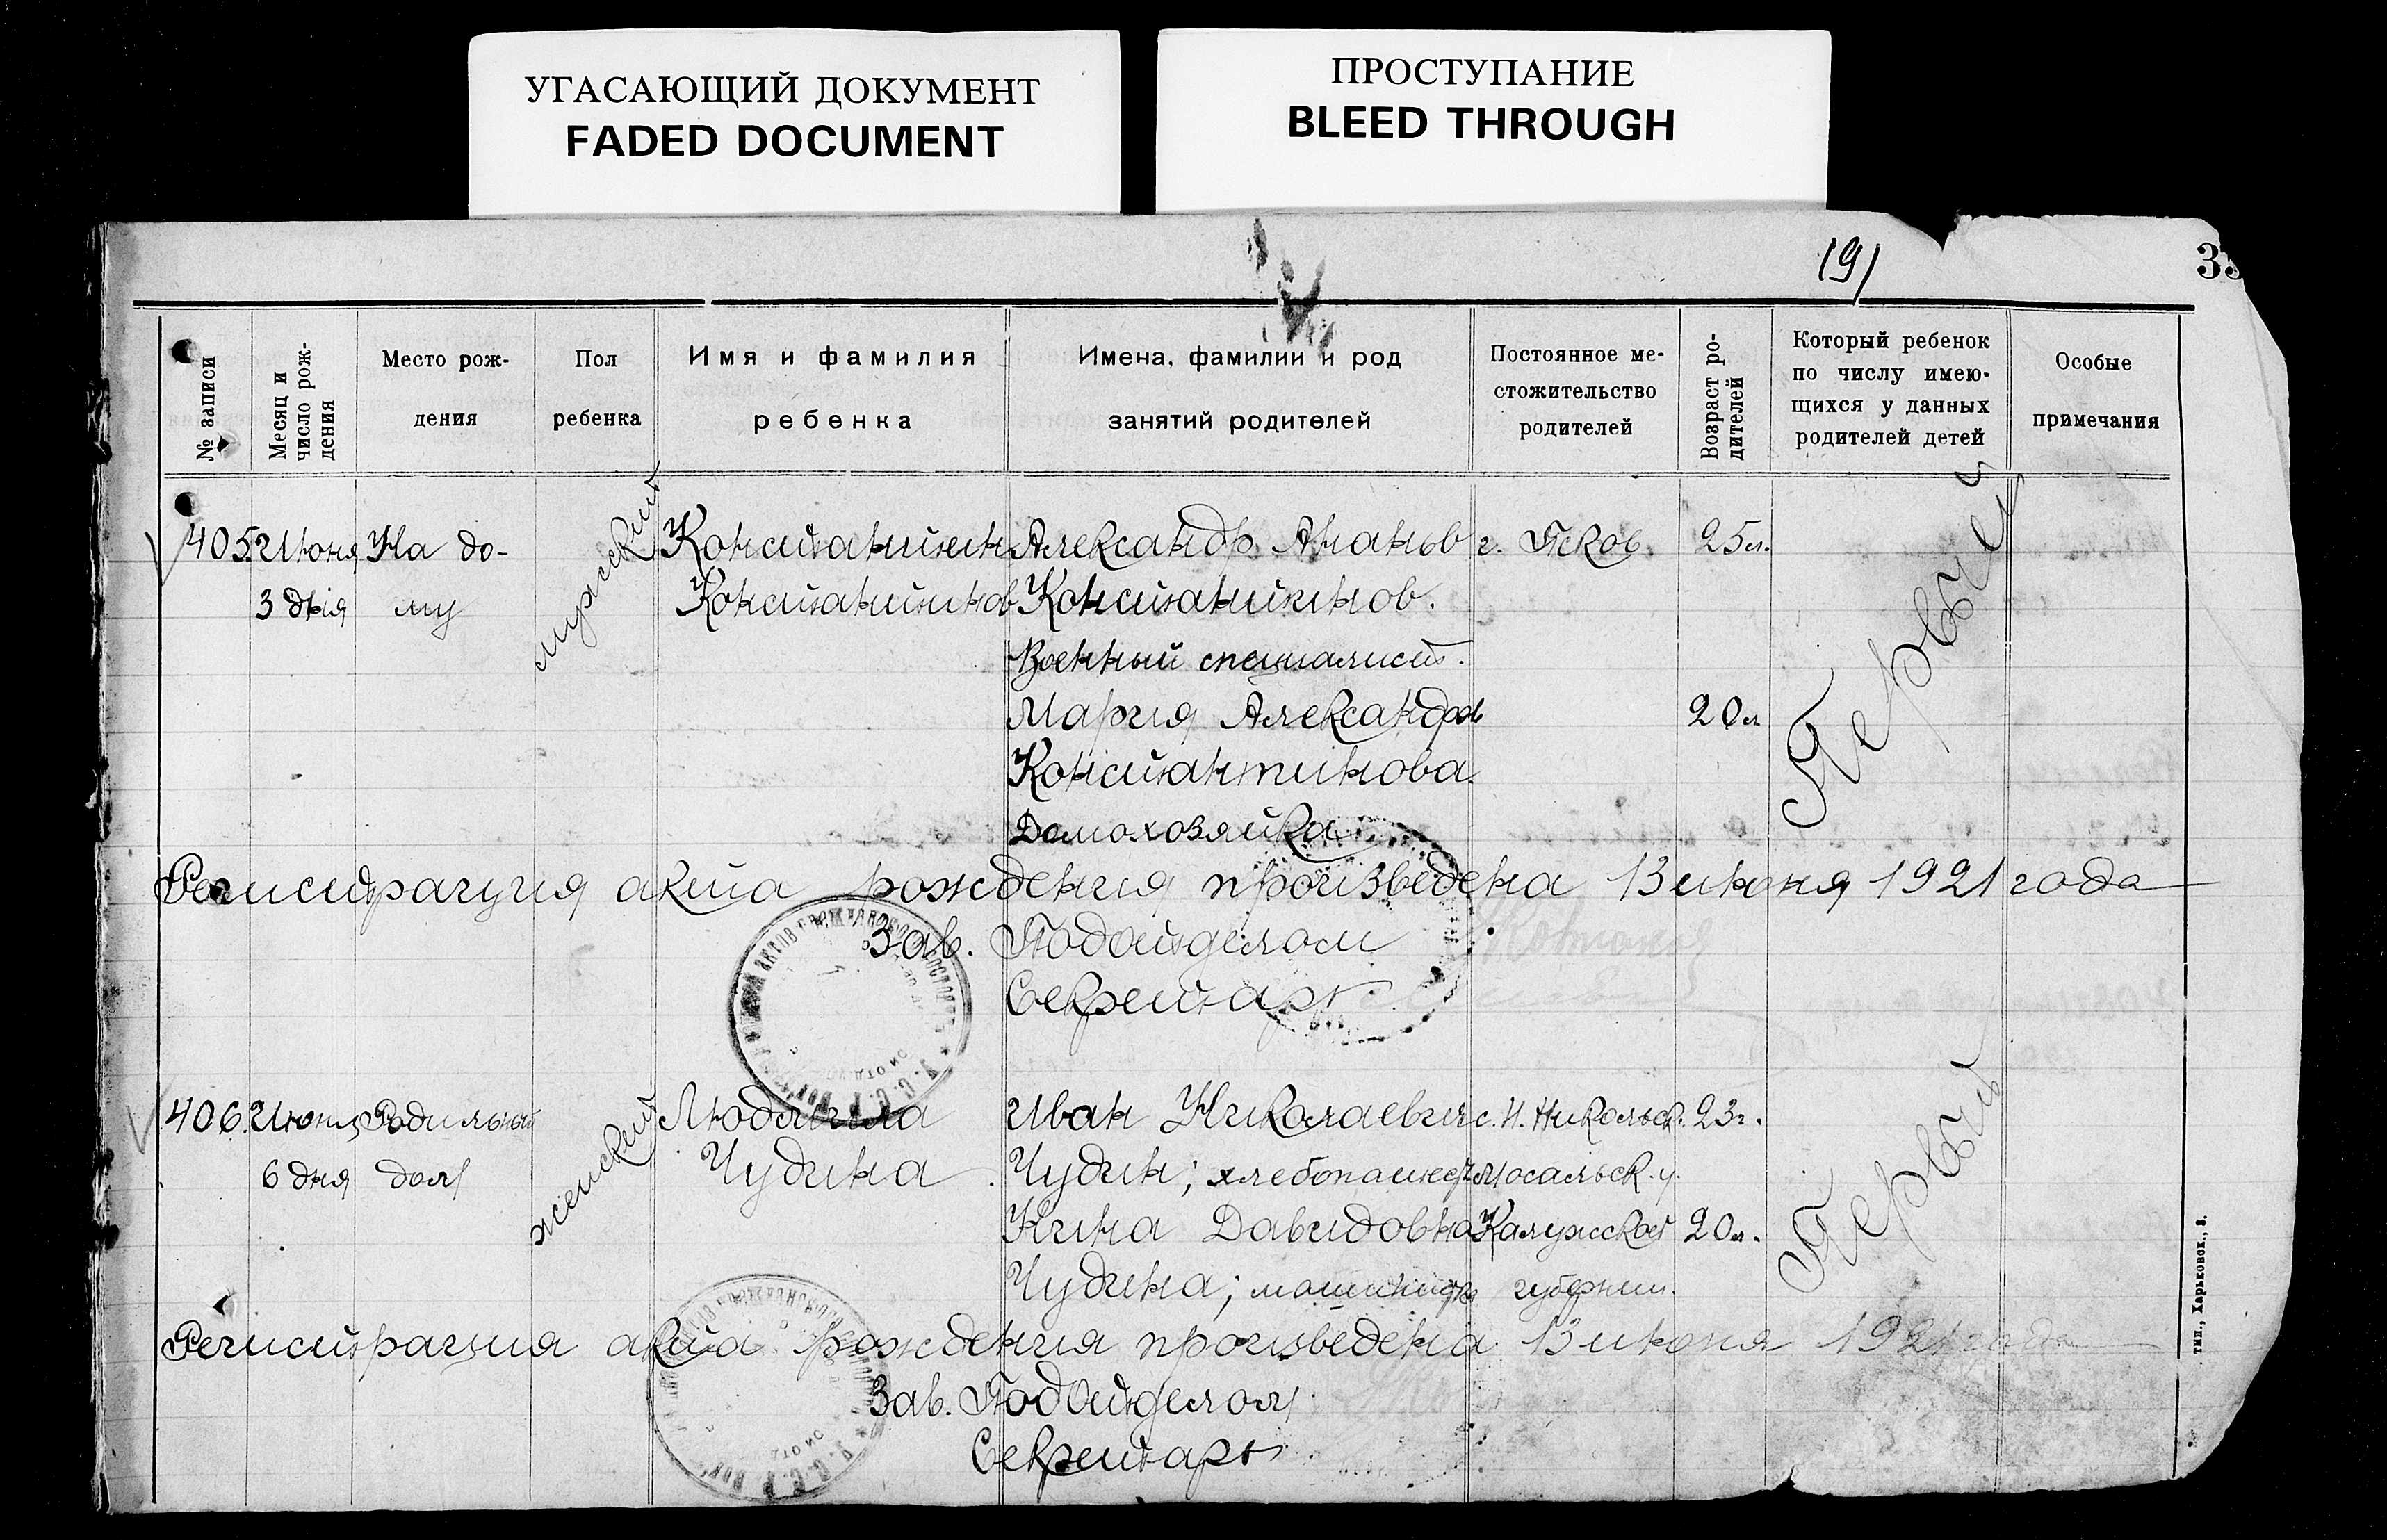 УГАСАЮЩИЙ ДОКУМЕНТ
FADED DOCUMENT
ПРОСТУПАНИЕ
BLEED THROUGH
(9)
№ записи
Месяц и число рож-дения
Место рож-
дения
Пол
ребенка
Имя и фамилия
ребенка
Имена, фамилии и род
занятий родителей
Постоянное ме-
стожительство
родителей
Возраст ро-
дителей
Который ребенок
по числу имею-
щихся у данных
родителей детей
Особые
примечания
405. Июня На до- мужской Константин Александр Ананьв г. Псков. 25 л. Первый
3 дня му Константинов Константинов.
Военный специалист.
Мария Александров 20 л
Константинова.
Домохозяйка
Регистрация акта рождения произведена 13 июня 1921 года
Зав. Подотделом
Секретарь
406. Июня Родильный женский Людмила Иван Николаевич с. Н. Никольск. 23 г. Первый
6 дня дом Чудина Чудин; хлебопашец Мосальск. у.
Нина Давидовна Калужской 20 л.
Чудина; губернии.
Регистрация акта рождения произведена 13 июня 1921 года
Зав. Подотделом
Секретарь
тип., Харьковск., 8.